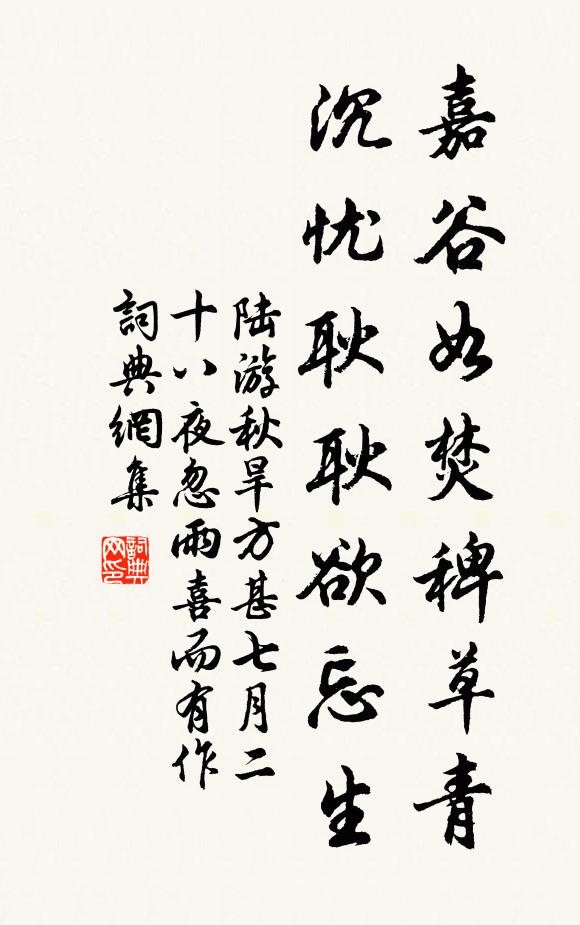 嘉谷如焚稗草青
沉忧耿耿欲忘生
陆游秋旱方甚七月二
十八夜忽雨喜而有作
詞典網集
詞典
网印